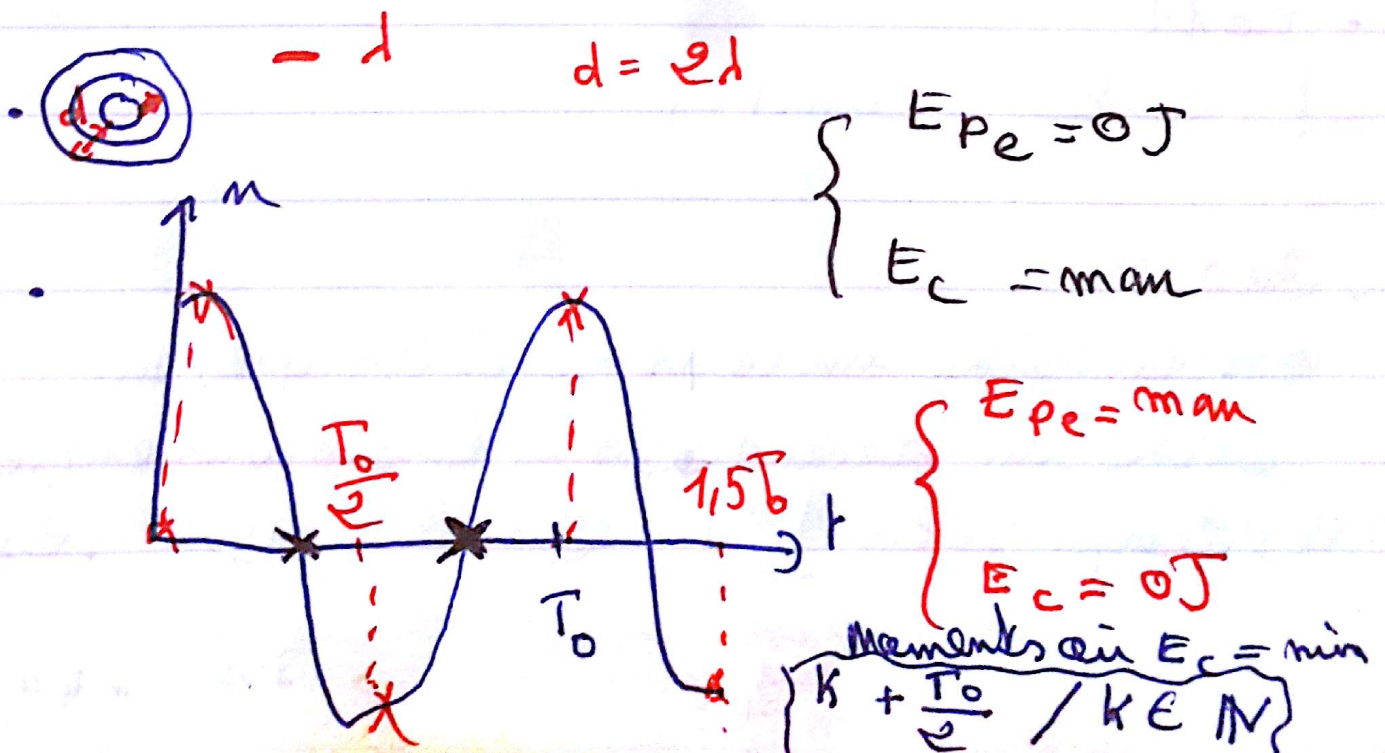 - λ
d = 2λ
d
E_Pe = 0 J
E_c = max
x
T_0/2
1,5T_0
t
T_0
E_Pe = max
E_c = 0J
Moments où E_c = min
{ K + T_0/2 / K ∈ ℕ }